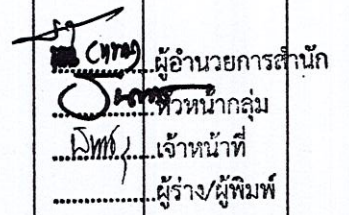 (แทน) ผู้อำนวยการสำนัก
หัวหน้ากลุ่ม
เจ้าหน้าที่
ผู้ร่าง/ผู้พิมพ์